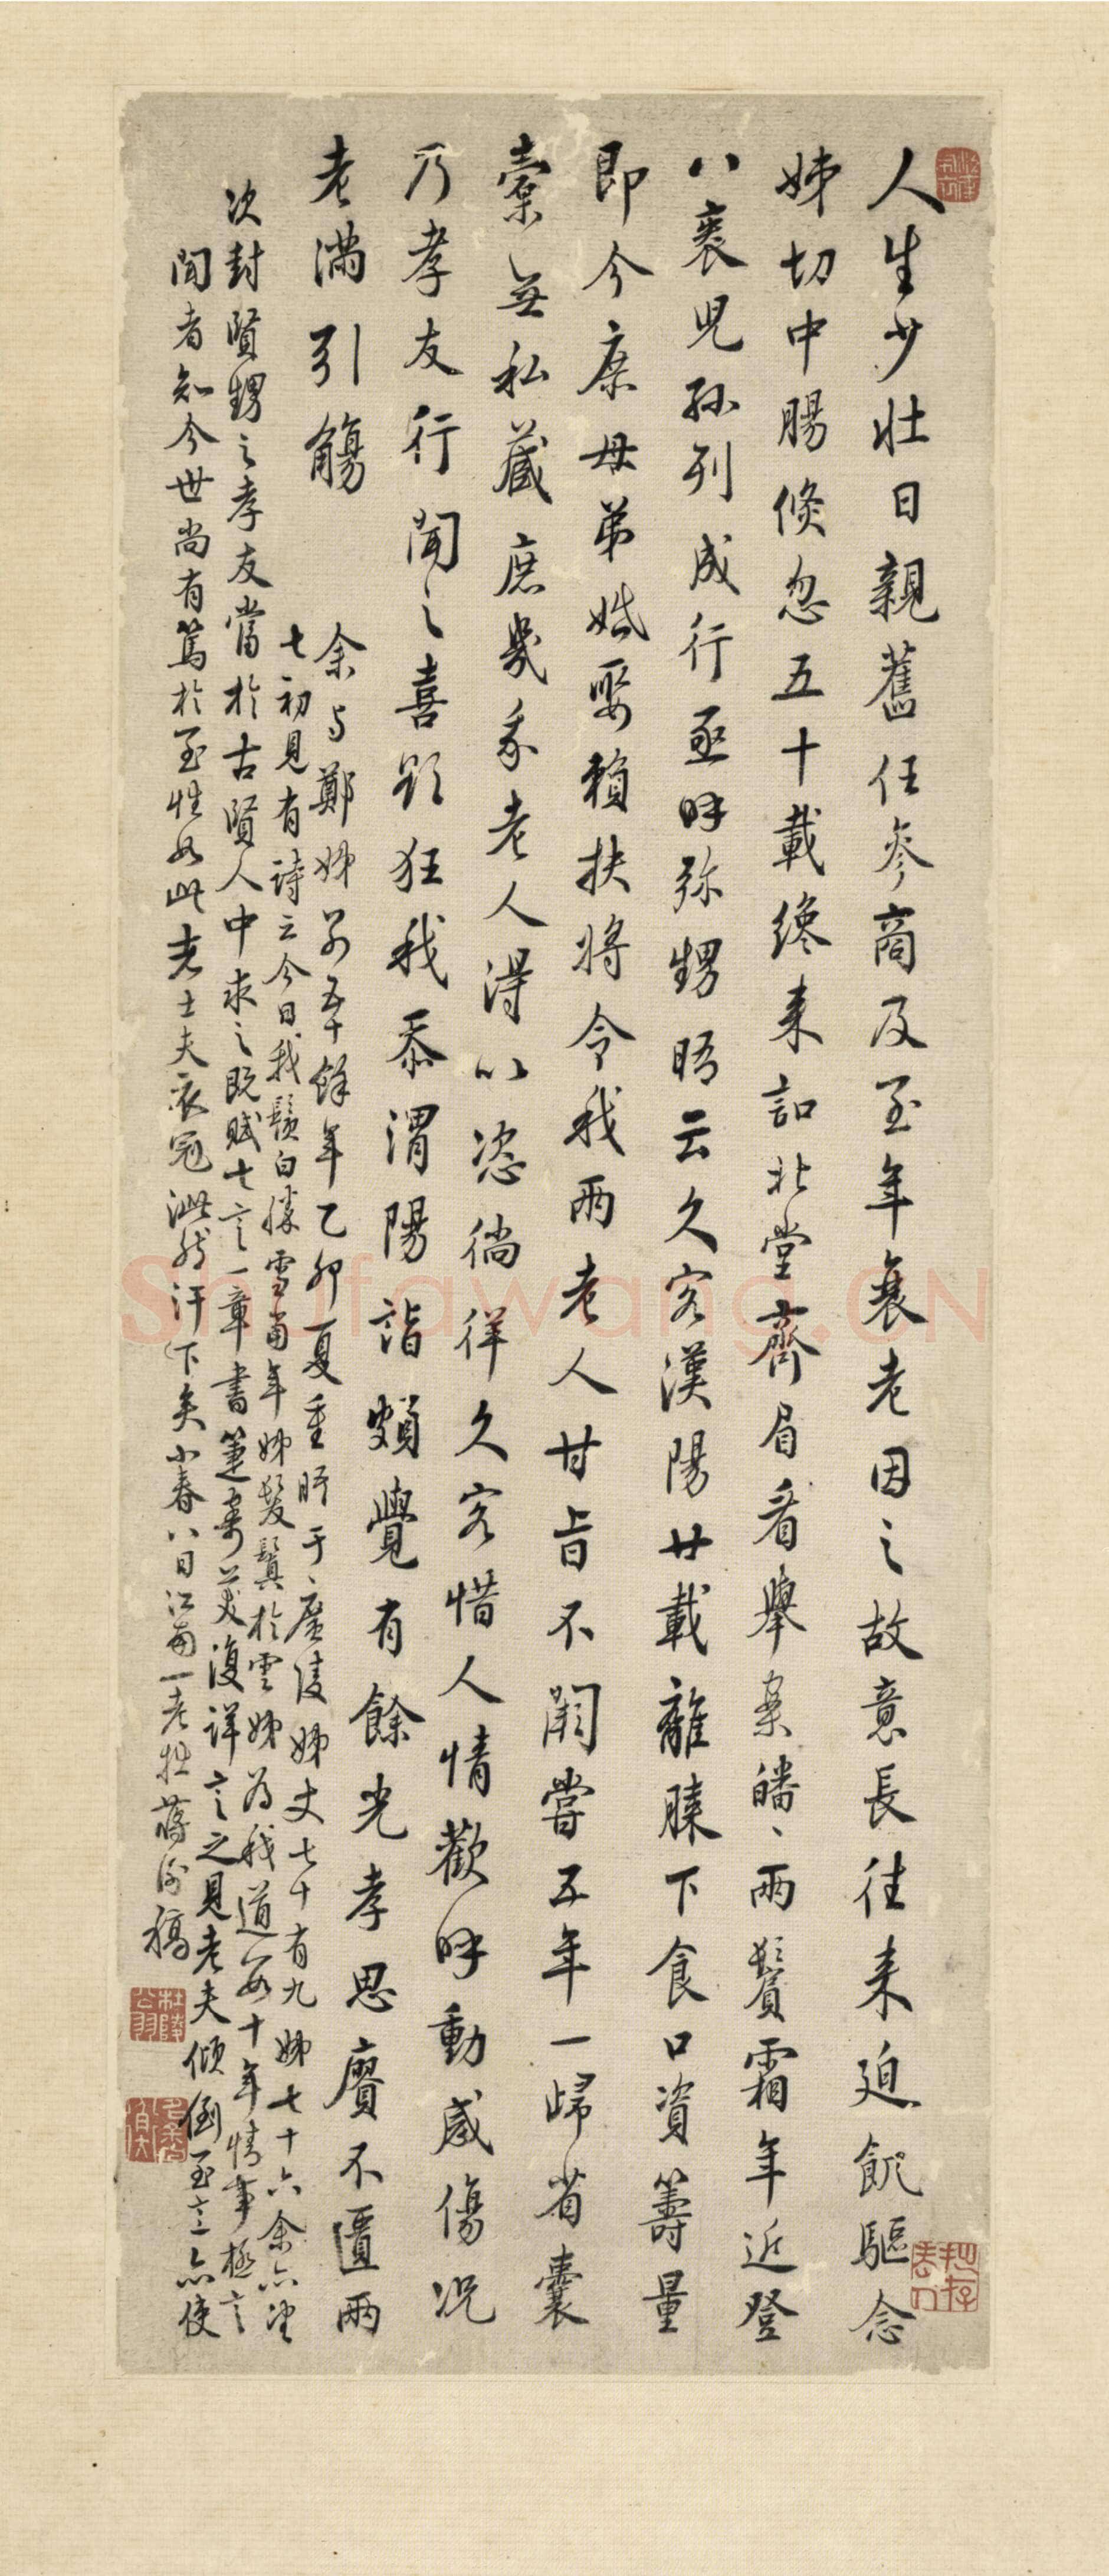 人生少壯日親舊任參商及至年衰老因之故意長往來迫飢驅念
姊切中腸倏忽五十載纔來詣北堂齊眉看舉案皤、兩鬢霜年近登
八袠兒孫列成行亟呼弥甥晤云久客漢陽廿載離膝下食口資籌量
即今康母弟婚娶賴扶將令我兩老人甘旨不闕嘗五年一歸省囊
橐無私藏庶幾我老人得以恣徜徉久客惜人情歡呼動感傷況
乃孝友行聞之喜欲狂我忝渭陽詣頗覺有餘光孝思賡不匱兩
老滿引觴
余与鄭姊別五十餘年乙卯夏重晤于廣陵姊丈七十有九姊七十六余六望
七初見有詩云今日我鬚白勝雪當年姊髮鬒於雲姊為我道數十年情事極言
次封賢甥之孝友當於古賢人中求之既賦七言一章書箑寄美復詳言之見老夫傾倒至意亦使
聞者知今世尚有篤於至性如此者士夫衣冠泚然汗下矣小春八日江南一老牡蔣衡稿
Shufawang.CN